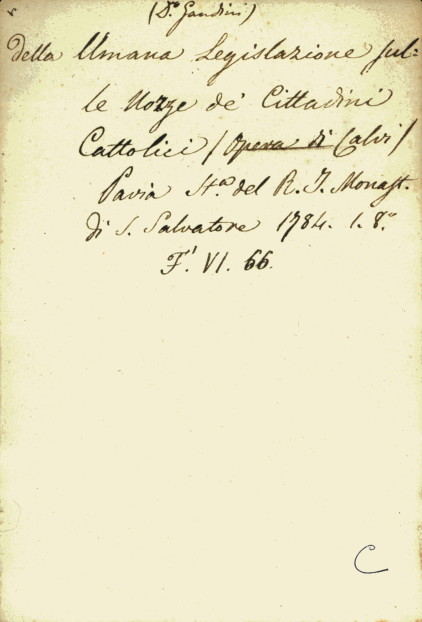 (Do. Gandini)
Della Umana Legislazione sul=
le Nozze de' Cittadini
Cattolici / Opera di Calvi /
Pavia Sta. del R. I. Monast.
di S. Salvatore 1784. 1. 8.o
F.' VI. 66.
C